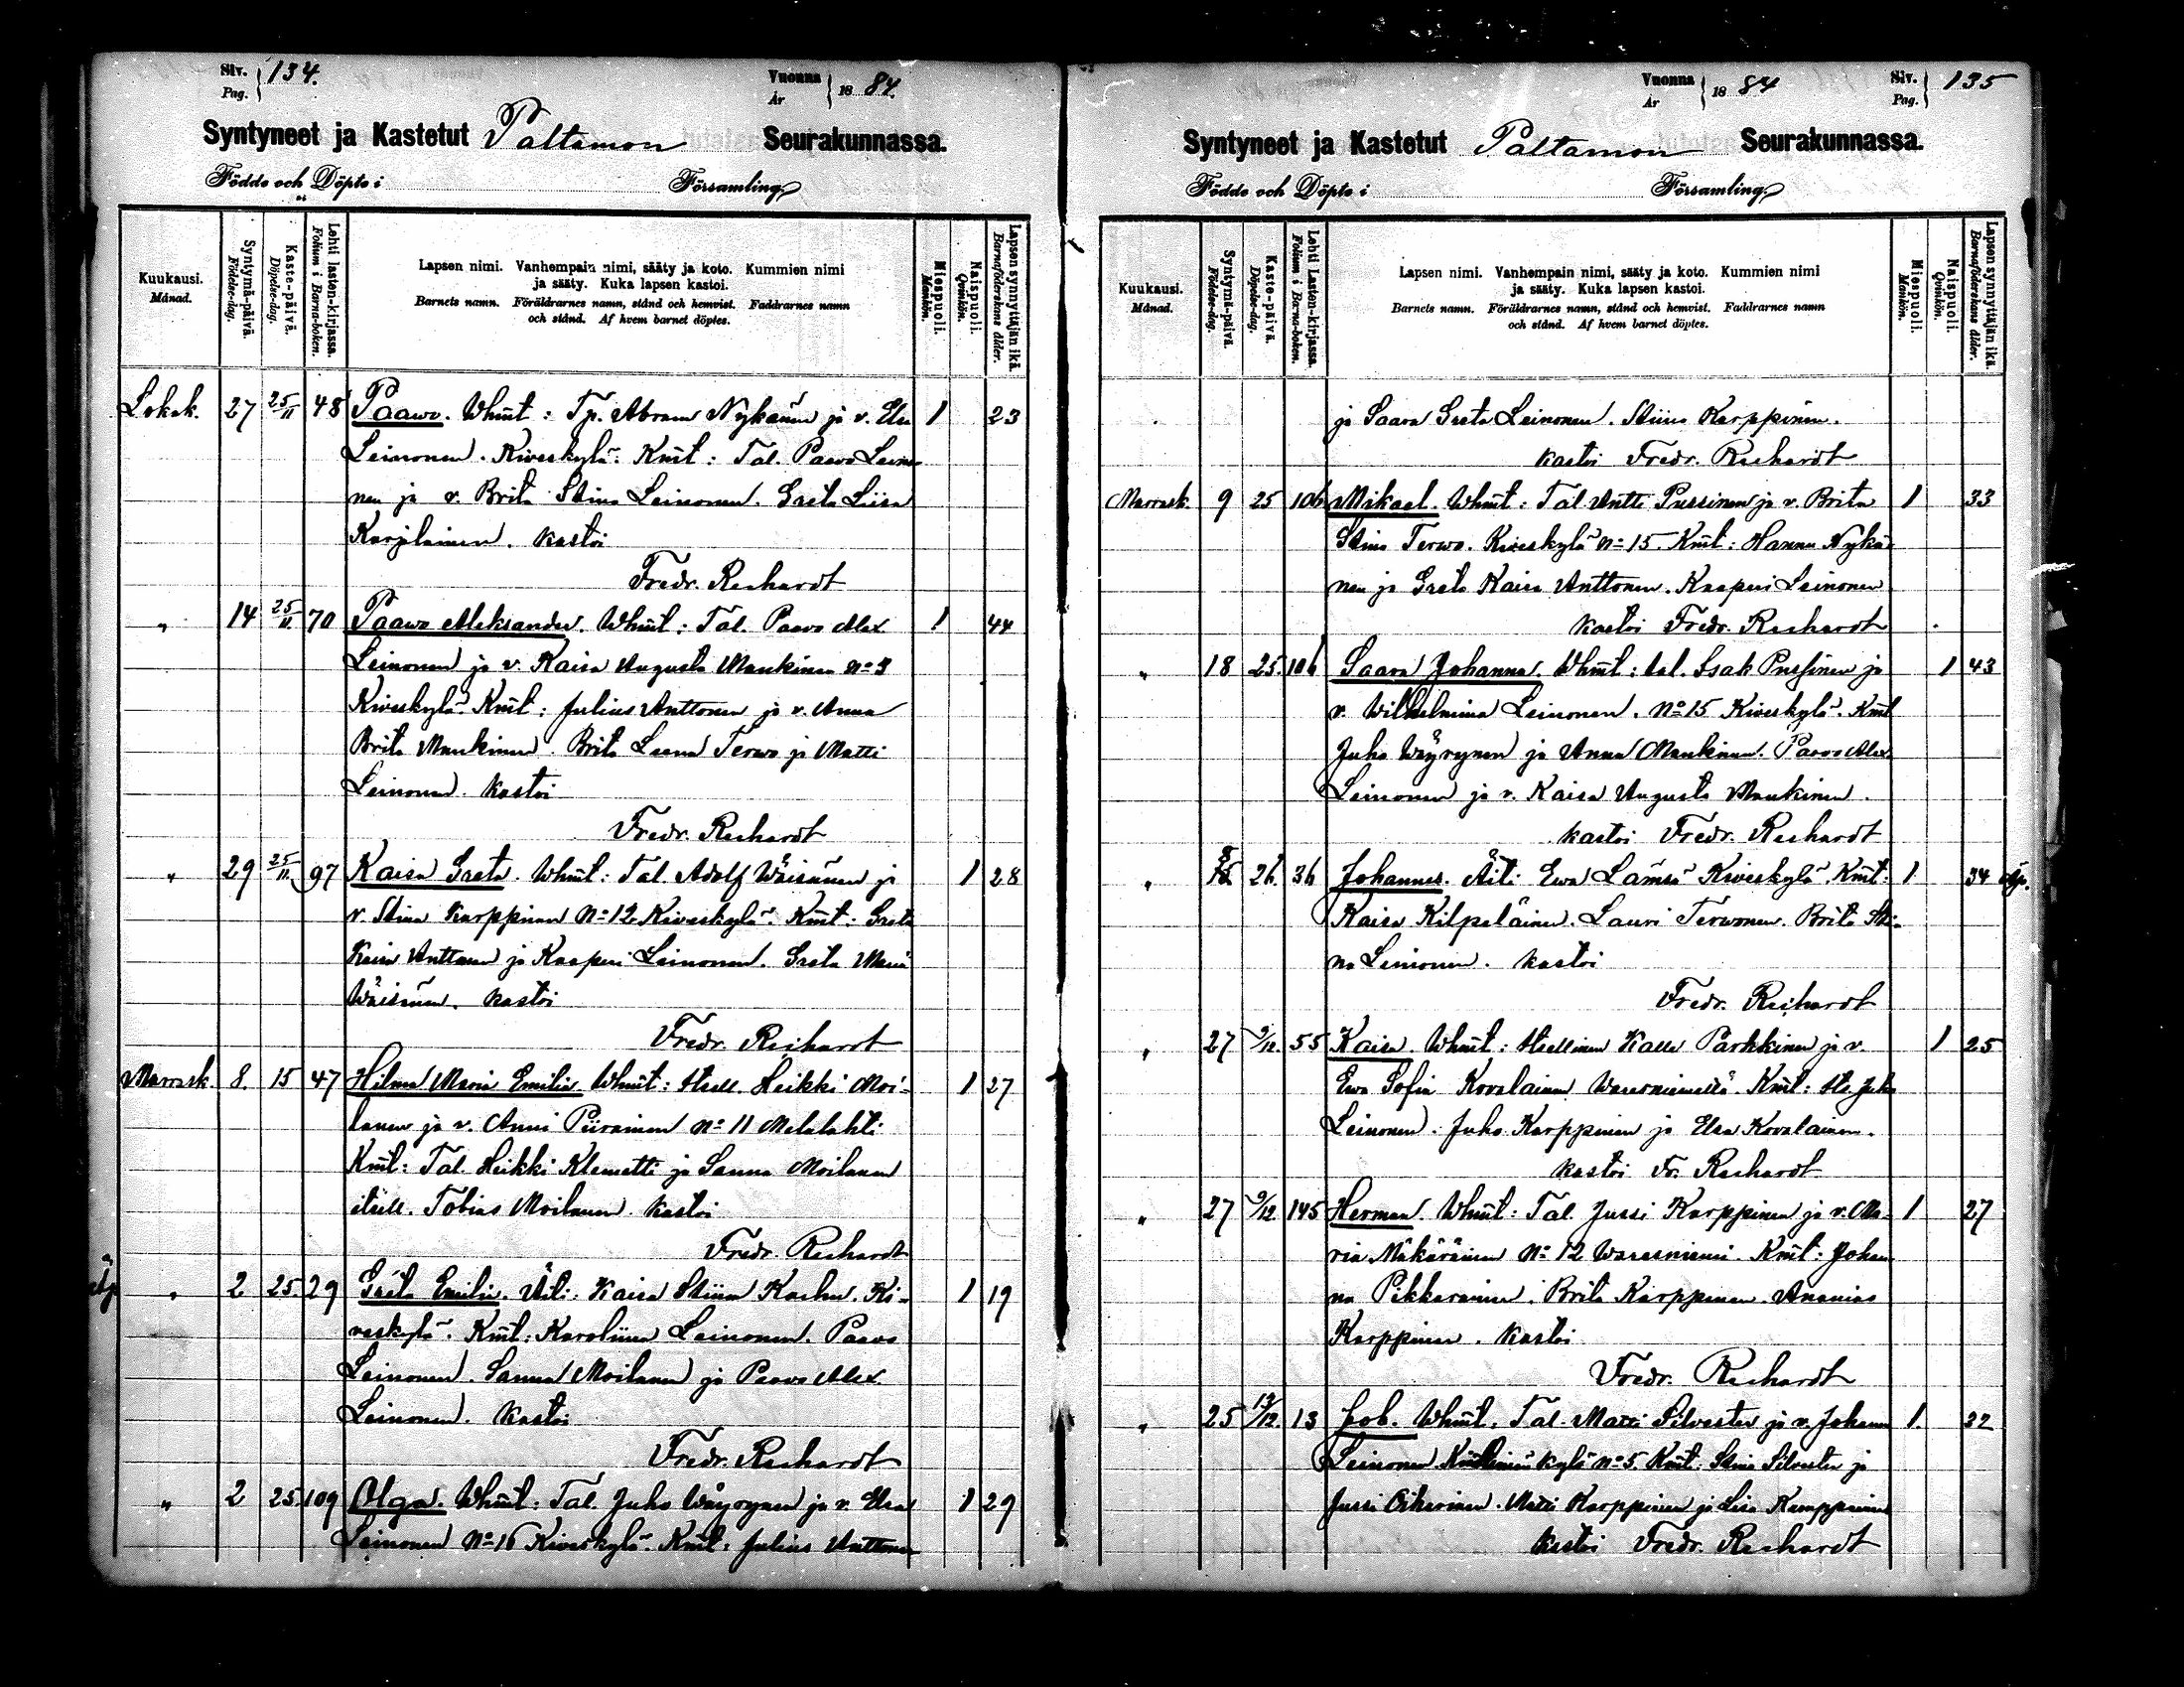 Siv. Pag. 134.
Vuonna År 18 84.
Syntyneet ja Kastetut Paltamon Seurakunnassa.
Födde och Döpte i Församling
Kuukausi. Månad.
Syntymä-päivä. Födelse-dag.
Kaste-päivä. Döpelse-dag.
Lehti lasten-kirjassa. Folium i Barna-boken.
Lapsen nimi. Vanhempain nimi, sääty ja koto. Kummien nimi
ja sääty. Kuka lapsen kastoi.
Barnets namn. Föräldrarnes namn, stånd och hemvist. Faddrarnes namn
och stånd. Af hvem barnet döptes.
Miespuoli. Mankön.
Naispuoli. Qvinkön.
Lapsen synnyttäjän ikä. Barnaföderskans ålder.
Lokak. 27 25/11 48 Paavo. Whmt: Tp. Abram Nykänen ja v. Elsa 1 23
Leinonen. Kiveskylä. Kmt: Tal. Paavo Leino
nen ja v. Brita Stina Leinonen. Greta Liisa
Karjalainen. kastoi
Fredr. Rechardt
" 14 25/11. 70 Paavo Aleksander. Whmt: Tal. Paavo Alex. 1 44
Leinonen ja v. Kaisa Augusta Mankinen No 3
Kiveskylä. Kmt: Julius Anttonen ja v. Anna
Brita Mankinen. Brita Leena Terwo ja Matti
Leinonen. kastoi
Fredr. Rechardt
" 29 25/11. 97 Kaisa Greta. Whmt: Tal. Adolf Wäisänen ja 1 28
v. Stina Karppinen No 12 Kiveskylä. Kmt: Greta
Kaisa Anttonen ja Kasperi Leinonen. Greta Maria
Wäisänen. kastoi
Fredr. Rechardt
Marrask. 8. 15 47 Hilma Maria Emilia. Whmt: Itsell. Heikki Moi- 1 27
lanen ja v. Anni Piirainen No 11 Melalahti
Kmt: Tal. Heikki Klemetti ja Sanna Moilanen
itsell. Tobias Moilanen. kastoi
Fredr. Rechardt
älp " 2 25. 29 Greta Emilia. Äiti: Kaisa Stiina Kachu. Ki- 1 19
veskylä. Kmt: Karoliina Leinonen. Paavo
Leinonen. Sanna Moilanen ja Paavo Alex.
Leinonen. kastoi
Fredr. Rechardt
" 2 25. 109 Olga. Whmt: Tal. Juho Wäyrynen ja v. Elsa 1 29
Leinonen No 16 Kiveskylä. Kmt: Julius Anttonen
Vuonna År 18 84
Siv. Pag. 135
Syntyneet ja Kastetut Paltamon Seurakunnassa.
Födde och Döpte i Församling
Kuukausi. Månad.
Syntymä-päivä. Födelse-dag.
Kaste-päivä. Döpelse-dag.
Lehti Lasten-kirjassa. Folium i Barna-boken.
Lapsen nimi. Vanhempain nimi, sääty ja koto. Kummien nimi
ja sääty. Kuka lapsen kastoi.
Barnets namn. Föräldrarnes namn, stånd och hemvist. Faddrarnes namn
och stånd. Af hvem barnet döptes.
Miespuoli. Mankön.
Naispuoli. Qvinkön.
Lapsen synnyttäjän ikä. Barnaföderskans ålder.
ja Saara Greta Leinonen. Stiina Karppinen.
kastoi Fredr. Rechardt
Marrask. 9 25 106 Mikael. Whmt: Tal. Antti Pussinen ja v. Brita 1 33
Stina Terwo. Kiveskylä No 15. Kmt: Hannu Nykä-
nen ja Greta Kaisa Anttonen. Kasperi Leinonen
kastoi Fredr. Rechardt
" 18 25. 106 Saara Johanna. Whmt: tal. Isak Pussinen ja 1 43
v. Wilhelmina Leinonen. No 15 Kiveskylä. Kmt
Juho Wäyrynen ja Anna Mankinen. Paavo Alex
Leinonen ja v. Kaisa Augusta Mankinen.
kastoi Fredr. Rechardt
" 8 26. 36 Johannes. Äiti Ewa Lämsä Kiveskylä. Kmt: 1 34 älp.
Kaisa Kilpeläinen. Lauri Terwonen. Brita Sti-
na Leinonen. kastoi
Fredr. Rechardt
" 27 9/12. 55 Kaisa. Whmt: Itsellinen Kalle Parkkinen ja v. 1 25
Ewa Sofia Kovalainen Waresniemellä. Kmt: Its. Juho
Leinonen. Juho Karppinen ja Elsa Kovalainen.
kastoi Fr. Rechardt
" 27 9/12. 145 Herman. Whmt: Tal. Jussi Karppinen ja v. Ma- 1 27
ria Mäkäräinen No 12 Waresniemi. Kmt: Johan
na Pikkarainen. Brita Karppinen. Ananias
Karppinen. kastoi
Fredr. Rechardt
" 25 13/12. 13 Job. Whmt. Tal. Matti Silvester ja v. Johanna 1. 22
Leinonen kylä No 5. Kmt. Stina Silvester ja
Jussi Oikarinen. Matti Karppinen ja Liisa Kemppainen
kastoi Fredr. Rechardt